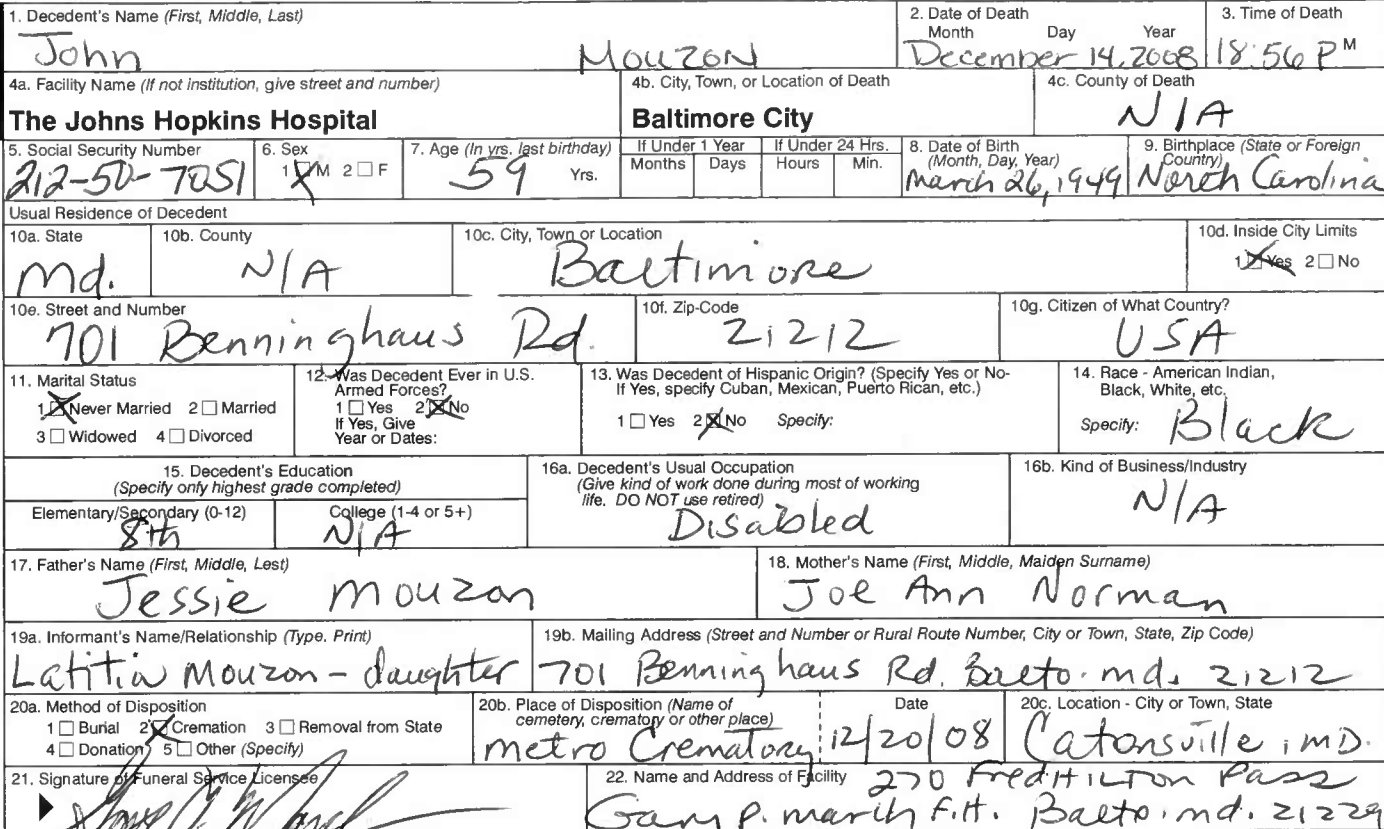 1. Decedent's Name (First, Middle, Last)
John Mouzon
2. Date of Death
Month Day Year
December 14, 2008
3. Time of Death
18:56 P M
4a. Facility Name (If not institution, give street and number)
The Johns Hopkins Hospital
4b. City, Town, or Location of Death
Baltimore City
4c. County of Death
N/A
5. Social Security Number
212-50-7051
6. Sex
1 M 2 F
7. Age (In yrs. last birthday)
59 Yrs.
If Under 1 Year
Months Days
If Under 24 Hrs.
Hours Min.
8. Date of Birth
(Month, Day, Year)
March 26, 1949
9. Birthplace (State or Foreign
Country)
North Carolina
Usual Residence of Decedent
10a. State
Md.
10b. County
N/A
10c. City, Town or Location
Baltimore
10d. Inside City Limits
1 Yes 2 No
10e. Street and Number
701 Benninghaus Rd.
10f. Zip-Code
21212
10g. Citizen of What Country?
USA
11. Marital Status
1 Never Married 2 Married
3 Widowed 4 Divorced
12. Was Decedent Ever in U.S.
Armed Forces?
1 Yes 2 No
If Yes, Give
Year or Dates:
13. Was Decedent of Hispanic Origin? (Specify Yes or No-
If Yes, specify Cuban, Mexican, Puerto Rican, etc.)
1 Yes 2 No Specify:
14. Race - American Indian,
Black, White, etc.
Specify: Black
15. Decedent's Education
(Specify only highest grade completed)
Elementary/Secondary (0-12)
8th
College (1-4 or 5+)
N/A
16a. Decedent's Usual Occupation
(Give kind of work done during most of working
life. DO NOT use retired)
Disabled
16b. Kind of Business/Industry
N/A
17. Father's Name (First, Middle, Last)
Jessie Mouzon
18. Mother's Name (First, Middle, Maiden Surname)
Joe Ann Norman
19a. Informant's Name/Relationship (Type. Print)
Latitia Mouzon - daughter
19b. Mailing Address (Street and Number or Rural Route Number, City or Town, State, Zip Code)
701 Benninghaus Rd. Balto. md. 21212
20a. Method of Disposition
1 Burial 2 Cremation 3 Removal from State
4 Donation 5 Other (Specify)
20b. Place of Disposition (Name of
cemetery, crematory or other place)
Metro Crematory
Date
12/20/08
20c. Location - City or Town, State
Catonsville, MD.
21. Signature of Funeral Service Licensee
22. Name and Address of Facility 270 Fred Hilton Pass
Gary P. March F.H. Balto. md. 21229